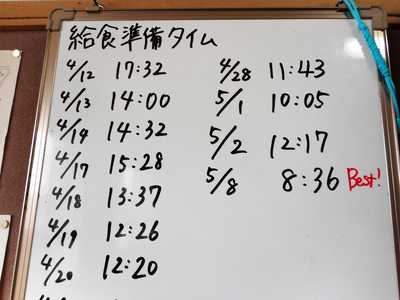 給食準備タイム
4/12 17:32
4/13 14:00
4/14 14:32
4/17 15:28
4/18 13:37
4/19 12:26
4/20 12:20
4/28 11:43
5/1 10:05
5/2 12:17
5/8 8:36 Best!